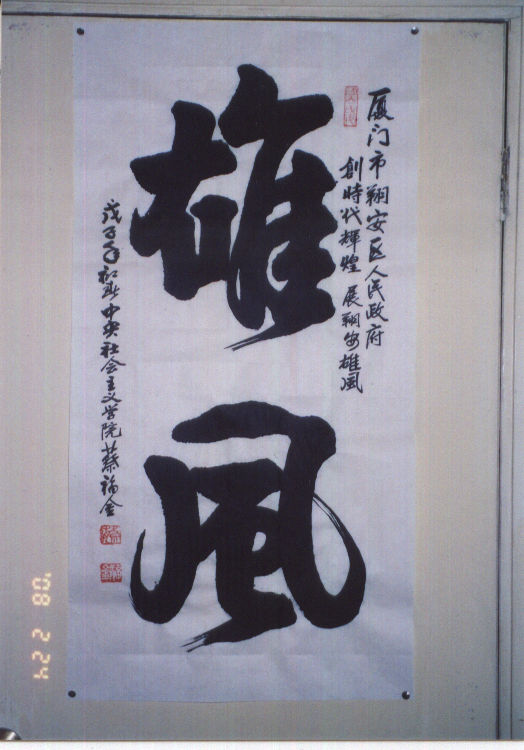 雄風
厦门市翔安区人民政府
創時代輝煌 展翔安雄風
戊子年初春中央社会主义学院蔡福金
'08 2 24